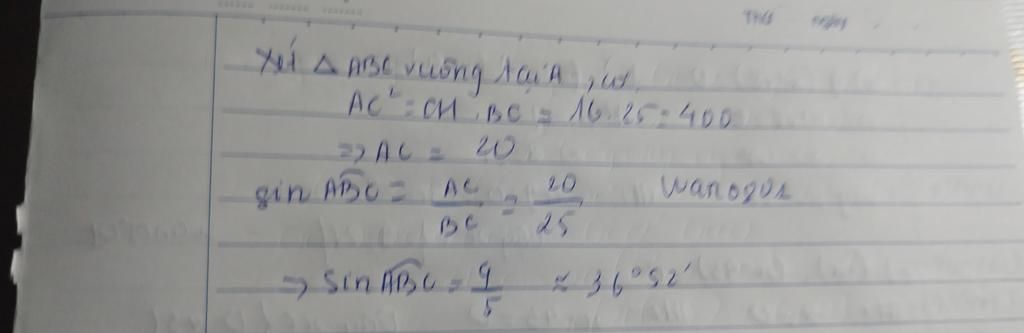 Thứ ngày
Xét △ ABC vuông tại A, có
AC² = CH . BC = 16 . 25 = 400
=> AC = 20
sin ABC = AC/BC = 20/25
=> sin ABC = 4/5 ≈ 36°52'